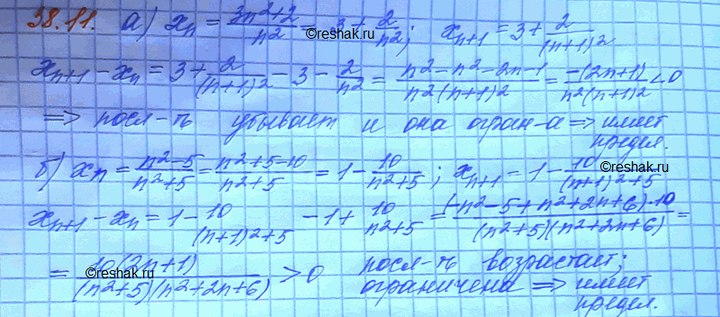 38.11. а) xₙ = (3n²+2)/n² = 3 + 2/n²; xₙ₊₁ = 3 + 2/(n+1)²
©reshak.ru
xₙ₊₁ − xₙ = 3 + 2/(n+1)² − 3 − 2/n² = (n²−n²−2n−1)/(n²(n+1)²) = −(2n+1)/(n²(n+1)²) < 0
⇒ посл-ть убывает и она огран-а ⇒ имеет
предел.
б) xₙ = (n²−5)/(n²+5) = (n²+5−10)/(n²+5) = 1 − 10/(n²+5); xₙ₊₁ = 1 − 10/((n+1)²+5)
xₙ₊₁ − xₙ = 1 − 10/((n+1)²+5) − 1 + 10/(n²+5) = (−n²−5+n²+2n+6)·10/((n²+5)(n²+2n+6)) =
= 10(2n+1)/((n²+5)(n²+2n+6)) > 0 посл-ть возрастает;
ограничена ⇒ имеет
предел.
©reshak.ru